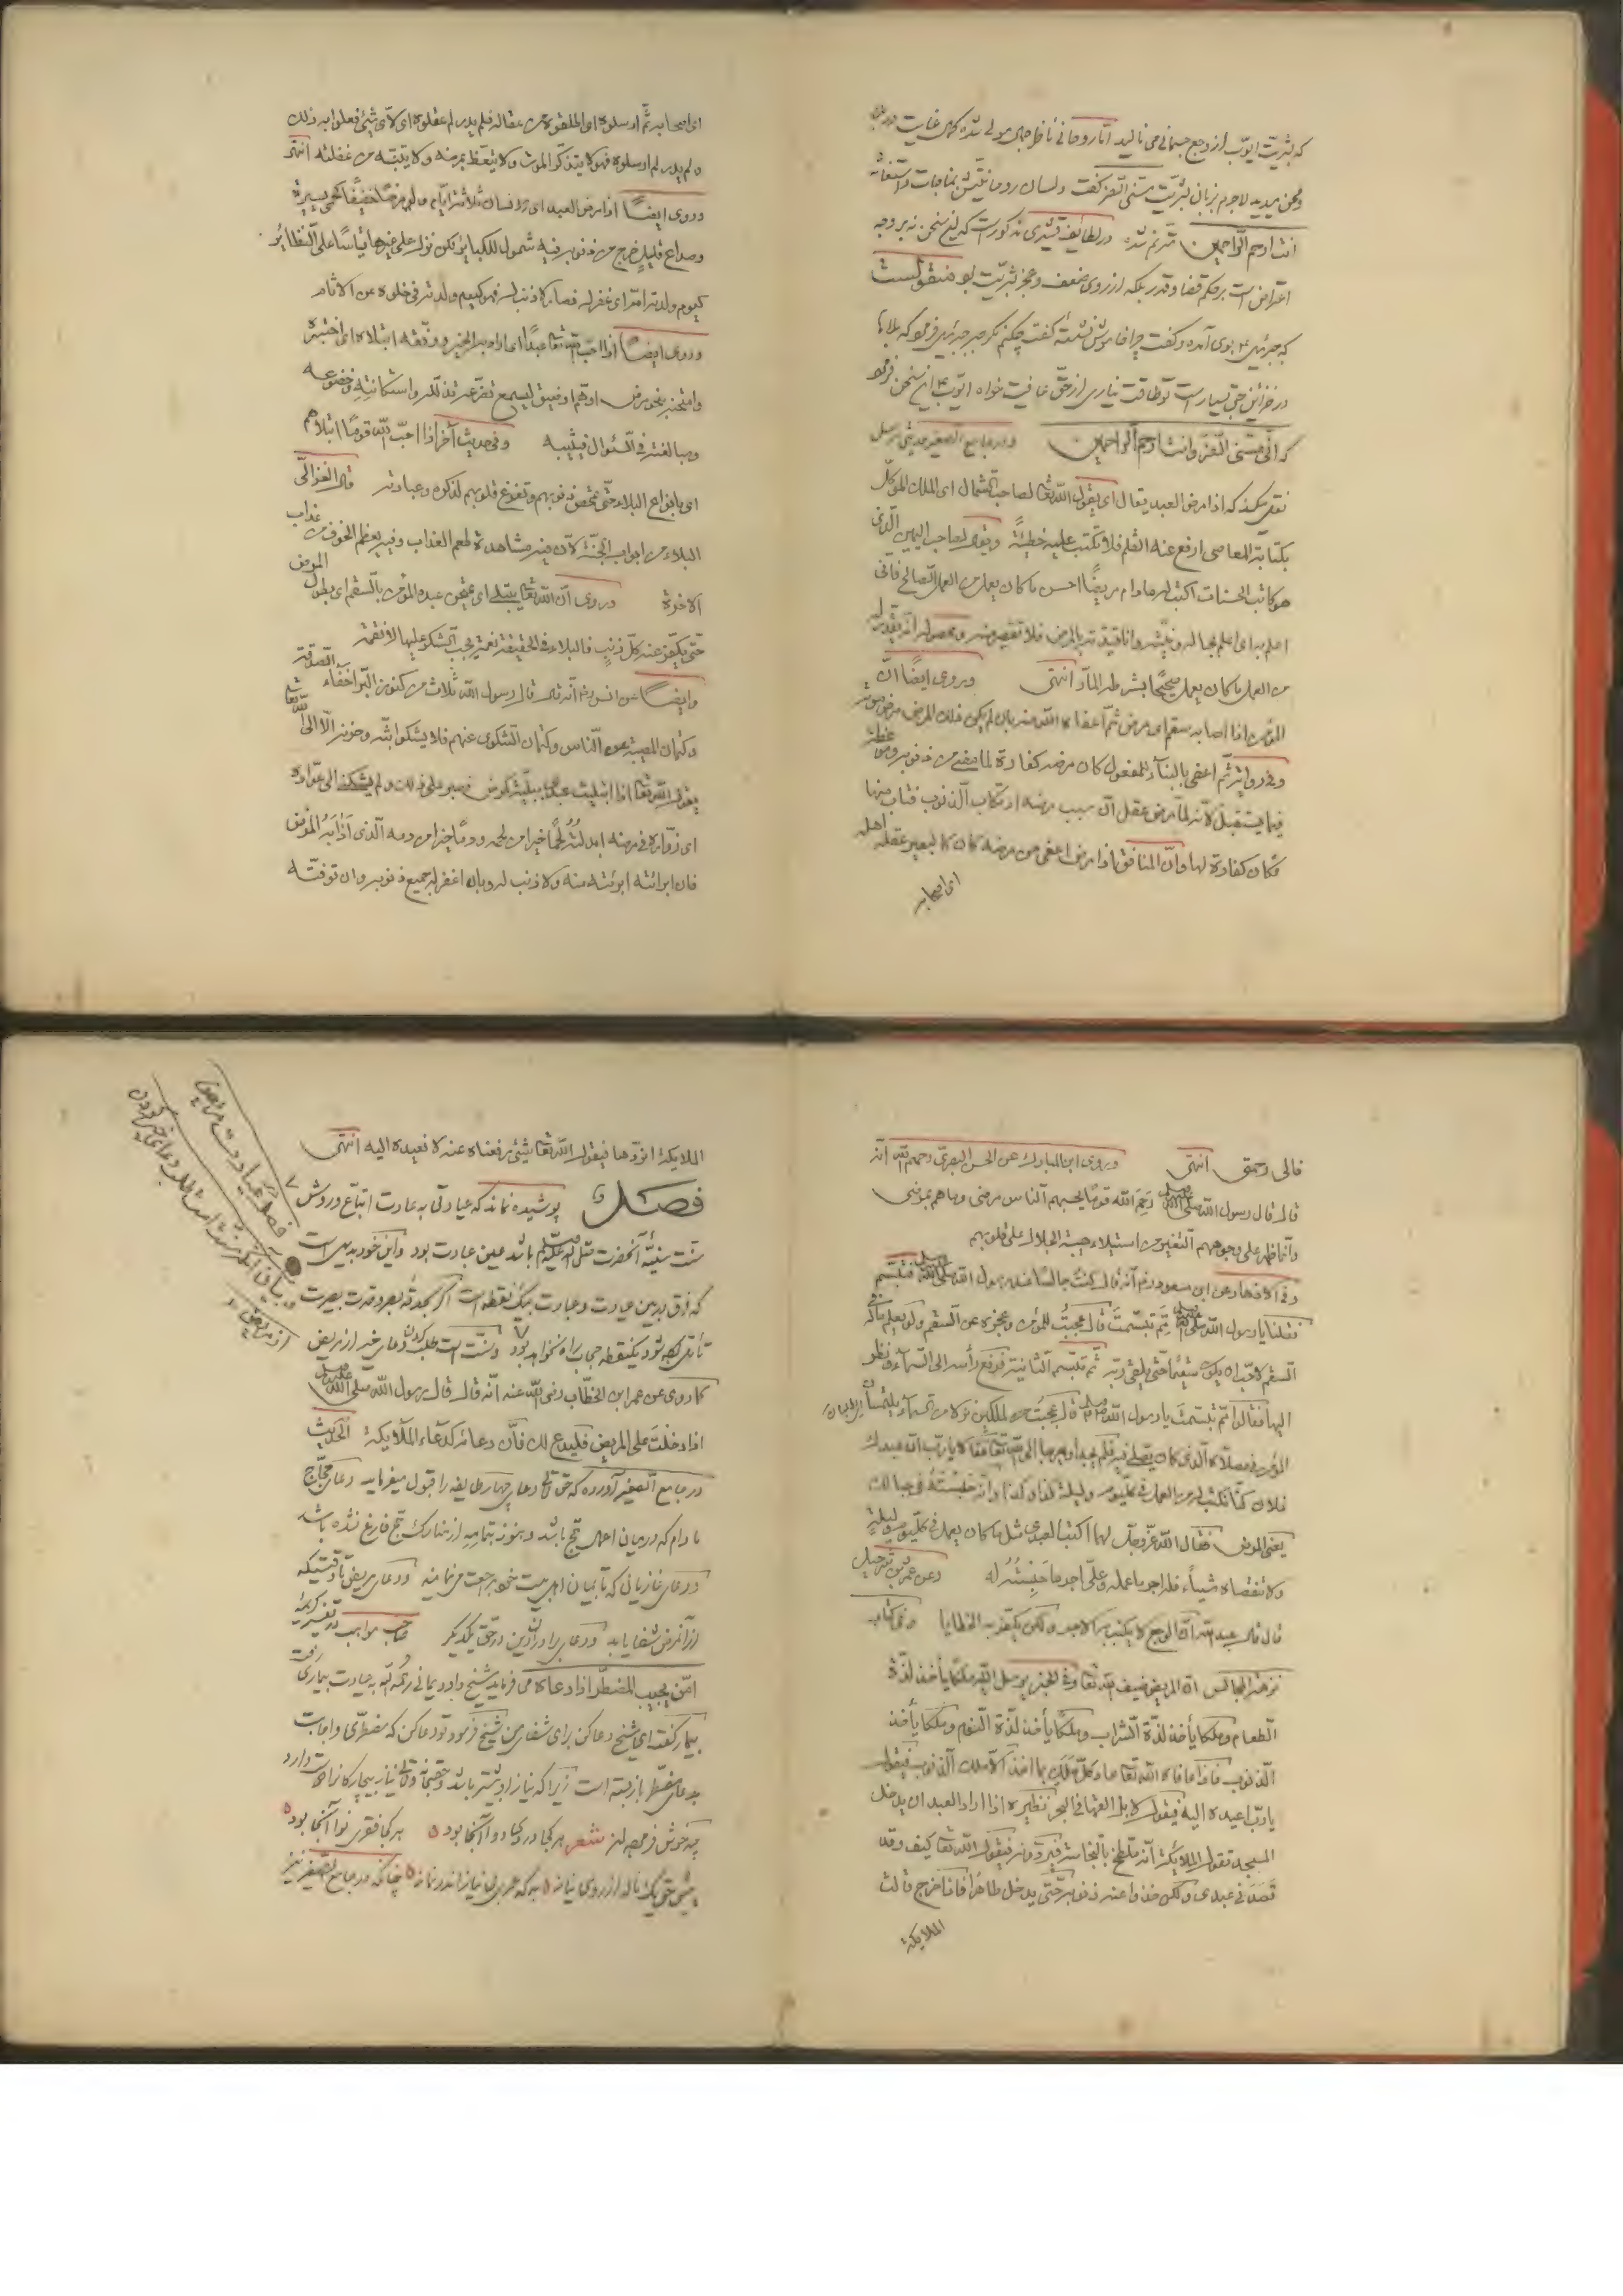 که بشریت ایوب از وجع جسمانی می نالید اما روحانی ناظر جمال مولی شده کمال عنایت در
محن میدید لاجرم بزبان بشریت مسنی الضر گفت ولسان روحانیتش بمناجات واستغاثه
انت ارحم الراحمین مترنم شده در لطایف قشیری مذکورست که این سخن نه بر وجه
اعتراض است بر حکم قضا وقدر بلکه از روی ضعف وعجز بشریت بود منقولست
که جبرئیل بوی آمده وگفت چرا خاموش نشسته گفت چکنم بجز صبر جبرئیل فرمود که بلاها
در خزائن حق بسیار است تو طاقت نیاری از حق عافیت خواه ایوب این سخن فرمود
که انی مسنی الضر وانت ارحم الراحمین ودر جامع الصغیر
نقل میکند که اذا مرض العبد یقول الله تعالی لصاحب الشمال ای الملک الموکل
بکتابة المعاصی ارفع عنه القلم فلا تکتب علیه خطیئة ویقول لصاحب الیمین الذی
هو کاتب الحسنات اکتب له ما دام مریضا احسن ما کان یعمل من العمل الصالح فانی
اعلم به ای اعلم بحاله وانا قیدته بالمرض فلا تقصیر منه
من العمل ما کان یعمل صحیحا انتهی وروی ایضا ان
المؤمن اذا اصابه سقم ای مرض ثم اعفاه الله منه بان لم یکن ذلک المرض مرض موته
وفی روایة ثم اعفی بالبناء للمفعول کان مرضه کفارة لما مضی من ذنوبه وموعظة
فیما یستقبل لانه لما مرض عقل ان سبب مرضه ارتکاب الذنوب فتاب منها
فکان کفارة لها وان المنافق اذا مرض ثم اعفی من مرضه کان کالبعیر عقله اهله
ای اصحابه
ای اصحابه ثم ارسلوه ای اطلقوه من عقاله فلم یدر لم عقلوه ای لای شیء فعلوا به ذلک
ولم یدر لم ارسلوه فهو لا یتذکر الموت ولا یتعظ بمرضه ولا یتنبه من غفلته انتهی
وروی ایضا اذا مرض العبد ای الانسان ثلاثة ایام ولو مرضا خفیفا کحمی یسیرة
وصداع قلیل خرج من ذنوبه فیه شمول للکبائر
کیوم ولدته امه ای غفر له فصار لا ذنب له فهو کیوم ولدته فی خلوه عن الآثام
وروی ایضا اذا احب الله تعالی عبدا ای اراد به الخیر ووفقه ابتلاه ای اختبره
وامتحنه بنحو مرض او هم او ضیق لیسمع تضرعه تذلله واستکانته وخضوعه
ومبالغته فی السؤال فیثیبه وفی حدیث آخر اذا احب الله قوما ابتلاهم
ای بانواع البلاء حتی تمحص ذنوبهم وتفرغ قلوبهم لذکره وعبادته قال الغزالی
البلاء من ابواب الجنة لان فیه مشاهدة لطعم العذاب وفیه یعظم الخوف من عذاب
الآخرة وروی ان الله تعالی یبتلی ای یمتحن عبده المؤمن بالسقم ای بطول المرض
حتی یکفر عنه کل ذنب فالبلاء فی الحقیقة نعمة یجب الشکر علیها لا نقمة
وایضا عن انس انه قال قال رسول الله ثلاث من کنوز البر اخفاء الصدقة
وکتمان المصیبة عن الناس وکتمان الشکوی عنهم فلا یشکو بثه وحزنه الا الی الله تعالی
یقول الله تعالی اذا ابتلیت عبدی ببلیة کمرض فصبر علی ذلک ولم یشکنی الی عواده
ای زواره فی مرضه ابدلته لحما خیرا من لحمه ودما خیرا من دمه الذی اذابه المرض
فان ابرأته ابرئته منه ولا ذنب له وبان اغفر له جمیع ذنوبه وان توفیته
فالی رحمتی انتهی وروی ابن المبارک عن الحسن البصری رحمهم الله انه
قال قال رسول الله صلی الله رحم الله قوما یحسبهم الناس مرضی وما هم بمرضی
وانما ظهر علی وجوههم التغیر من استیلاء هیبة الجلال علی قلوبهم
وفی الاذکار عن ابن مسعود انه قال کنت جالسا عند رسول الله فتبسم
فقلنا یا رسول الله مم تبسمت قال عجبت للمؤمن وجزعه عن السقم ولو یعلم ماله فی
السقم لاحب ان یکون سقیما حتی یلقی ربه ثم تبسم الثانیة فرفع رأسه الی السماء ونظر
الیها فقالوا مم تبسمت یا رسول الله قال عجبت من الملکین نزلا من السماء یلتمسان
المؤمن فی مصلاه الذی کان یصلی فیه فلم یجداه فعرجا الی الله تعالی فقالا یا رب ان عبدک
فلان کنا نکتب له من العمل فی کل یوم ولیلة کذا وکذا وانه حبسته فی حبالک
یعنی المرض فقال الله عز وجل لهما اکتبا لعبدی مثل ما کان یعمل فی کل یوم ولیلة
ولا تنقصاه شیئا فله اجر ما عمله وعلی اجر ما حبسته له وعن عمرو بن شرحبیل
قال قال عبد الله ان الوجع لا یکتب به الاجر ولکن یکفر به الخطایا وفی کتاب
نزهة المجالس ان المریض ضیف الله تعالی وفی الخبر یرسل الیه ملکا یأخذ لذة
الطعام وملکا یأخذ لذة الشراب وملکا یأخذ لذة النوم وملکا یأخذ
الذنوب فاذا عافاه الله تعالی عاد کل ملک بما اخذ الا ملک الذنوب فیقول
یا رب اعیده الیه فیقول لا بل القها فی البحر نظیره اذا اراد العبد ان یدخل
المسجد تقول الملائکة انه ملطخ بالنجاسة فیقول الله تعالی کیف وقد
قصدنی عبدی ولکن خذوا عنه ذنوبه حتی یدخل طاهرا فاذا خرج قالت
الملایکة
الملایکة انردها فیقول الله تعالی شیء رفعناه عنه لا نعیده الیه انتهی
فصل پوشیده نماند که عیادتی به عبادت اتباع وروش
سنت سنیه آنحضرت صلی الله علیه وسلم باشد عین عبادت بود واین خود بدیهی است
که فرق بین عیادت وعبادت بیک نقطه است اگر
یکنقطه حجاب راه نخواهد بود وسنت است طلب کردن دعای خیر از مریض
کما روی عن عمر ابن الخطاب رضی الله عنه انه قال قال رسول الله صلی الله
اذا دخلت علی المریض فلیدع لک فان دعائه کدعاء الملایکة الحدیث
در جامع الصغیر آورده که حق تعالی دعای چهار طایفه را قبول میفرماید دعای حجاج
ما دام که درمیان اعمال حج باشد وهنوز بتمامه از مناسک حج فارغ نشده باشد
ودعای غازیانی که تا بمیان اهل بیت خود مراجعت می نمایند ودعای مریض تا وقتیکه
از آن مرض شفا یابد ودعای برادر دین در حق یکدیگر صاحب مواهب در تفسیر کریمه
امن یجیب المضطر اذا دعاه می فرماید شیخ داود یمانی رحمه الله به عیادت بیماری رفت
بیمار گفت ای شیخ دعا کن برای شفای من شیخ فرمود تو دعا کن که مضطری واجابت
بدعای مضطر باز بسته است زیرا که نیاز او بیشتر باشد وحق تعالی نیاز بیچارگان را دوست دارد
چه خوش فرموده اند شعر هر کجا دردی دوا آنجا بود هر کجا فقری نوا آنجا بود
پیش حق یک ناله از روی نیاز به که عمری بی نیاز اندر نماز چنانکه در جامع الصغیر نیز
فصل در عیادت مریض
وبیان آنکه سنت است طلب دعای خیر کردن
از مریض